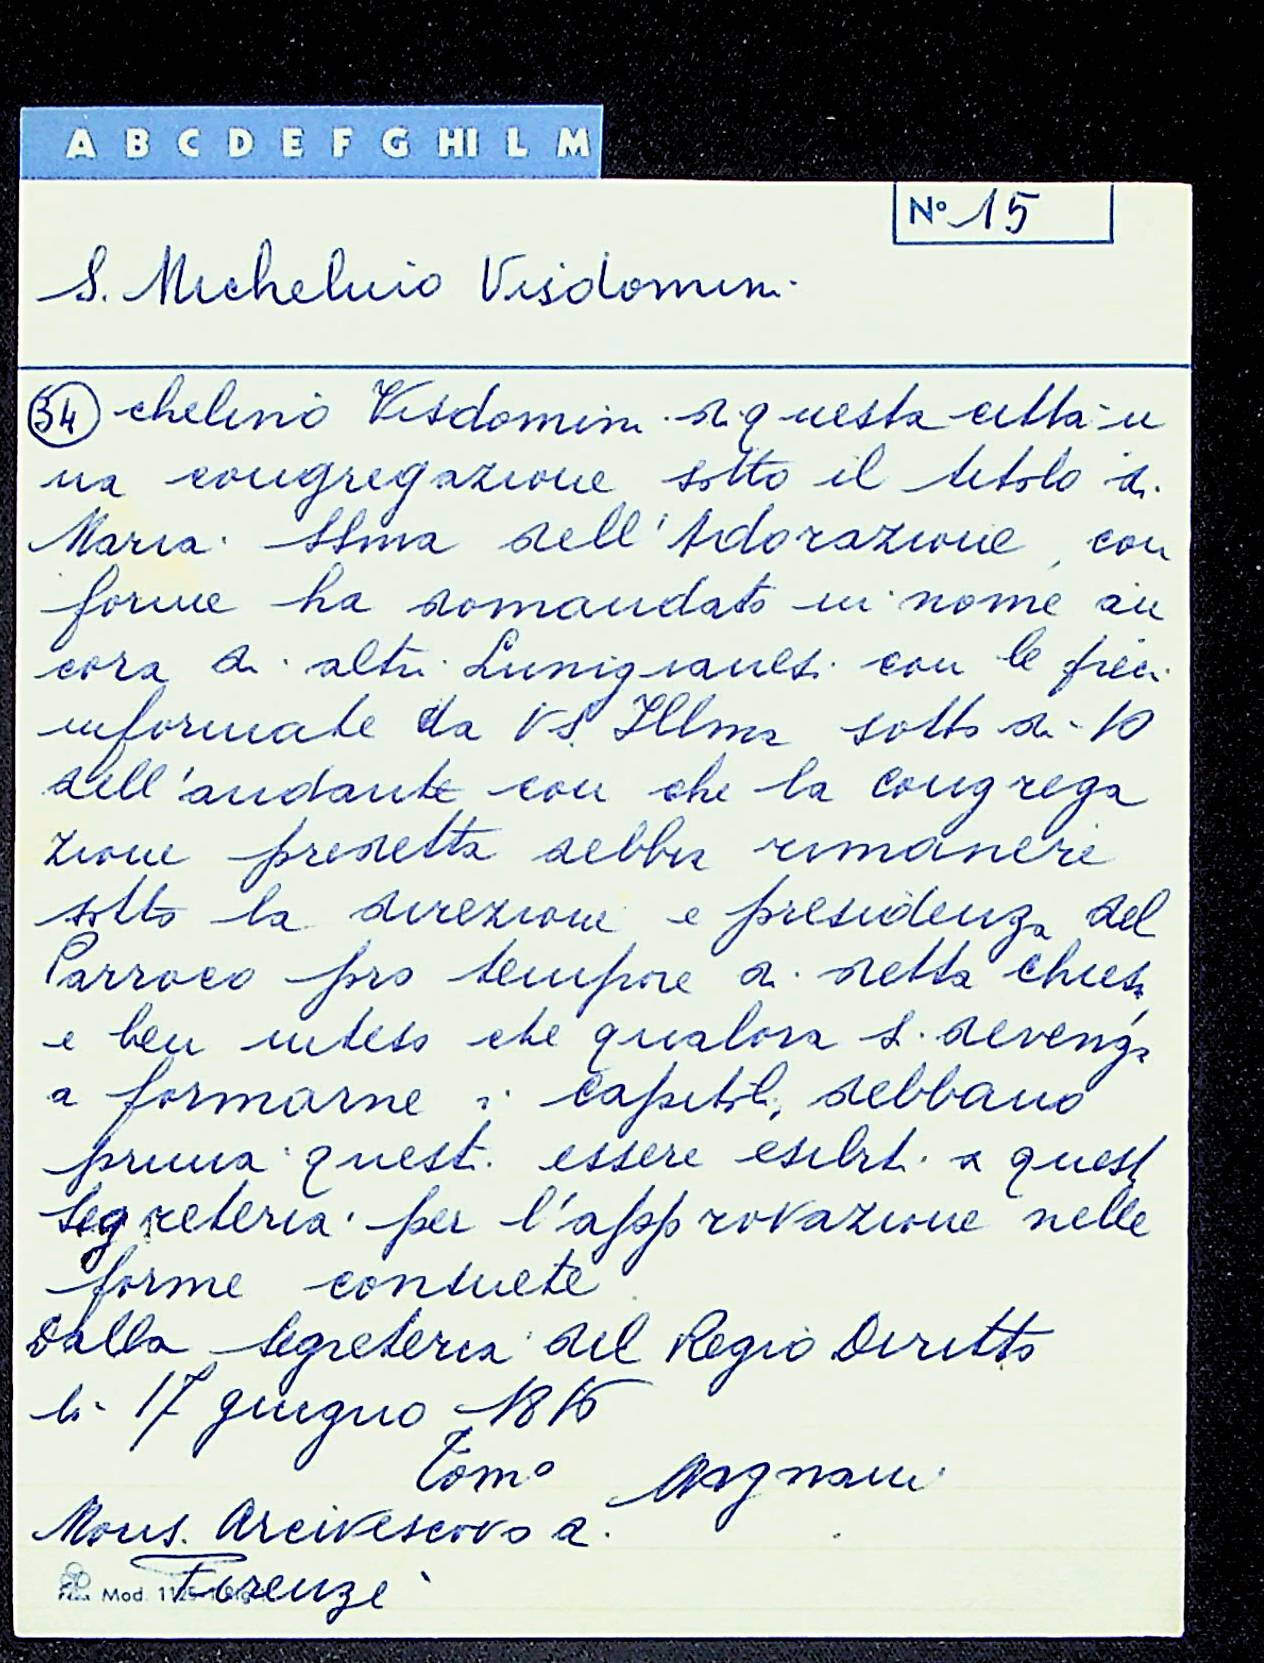 A B C D E F G HI L M
N° 15
S. Michelino Visdomini
34 chelino Visdomini di questa città u
na congregazione sotto il titolo di
Maria SSma dell'Adorazione, con
forme ha domandato in nome an
cora di altri Lunigianesi con le preci
informate da VS. Illma sotto di 10
dell'andante con che la Congrega
zione predetta debba rimanere
sotto la direzione e presidenza del
Parroco pro tempore di detta chiesa,
e ben inteso che qualora si devenga
a formarne i capitoli, debbano
prima questi essere esibiti a questa
Segreteria per l'approvazione nelle
forme consuete.
Dalla Segreteria del Regio Diritto
li 17 giugno 1816
Tomo Magnani
Mons. Arcivescovo di
Firenze
Mod.